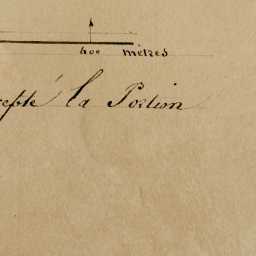 400 mètres
cepté la Portion